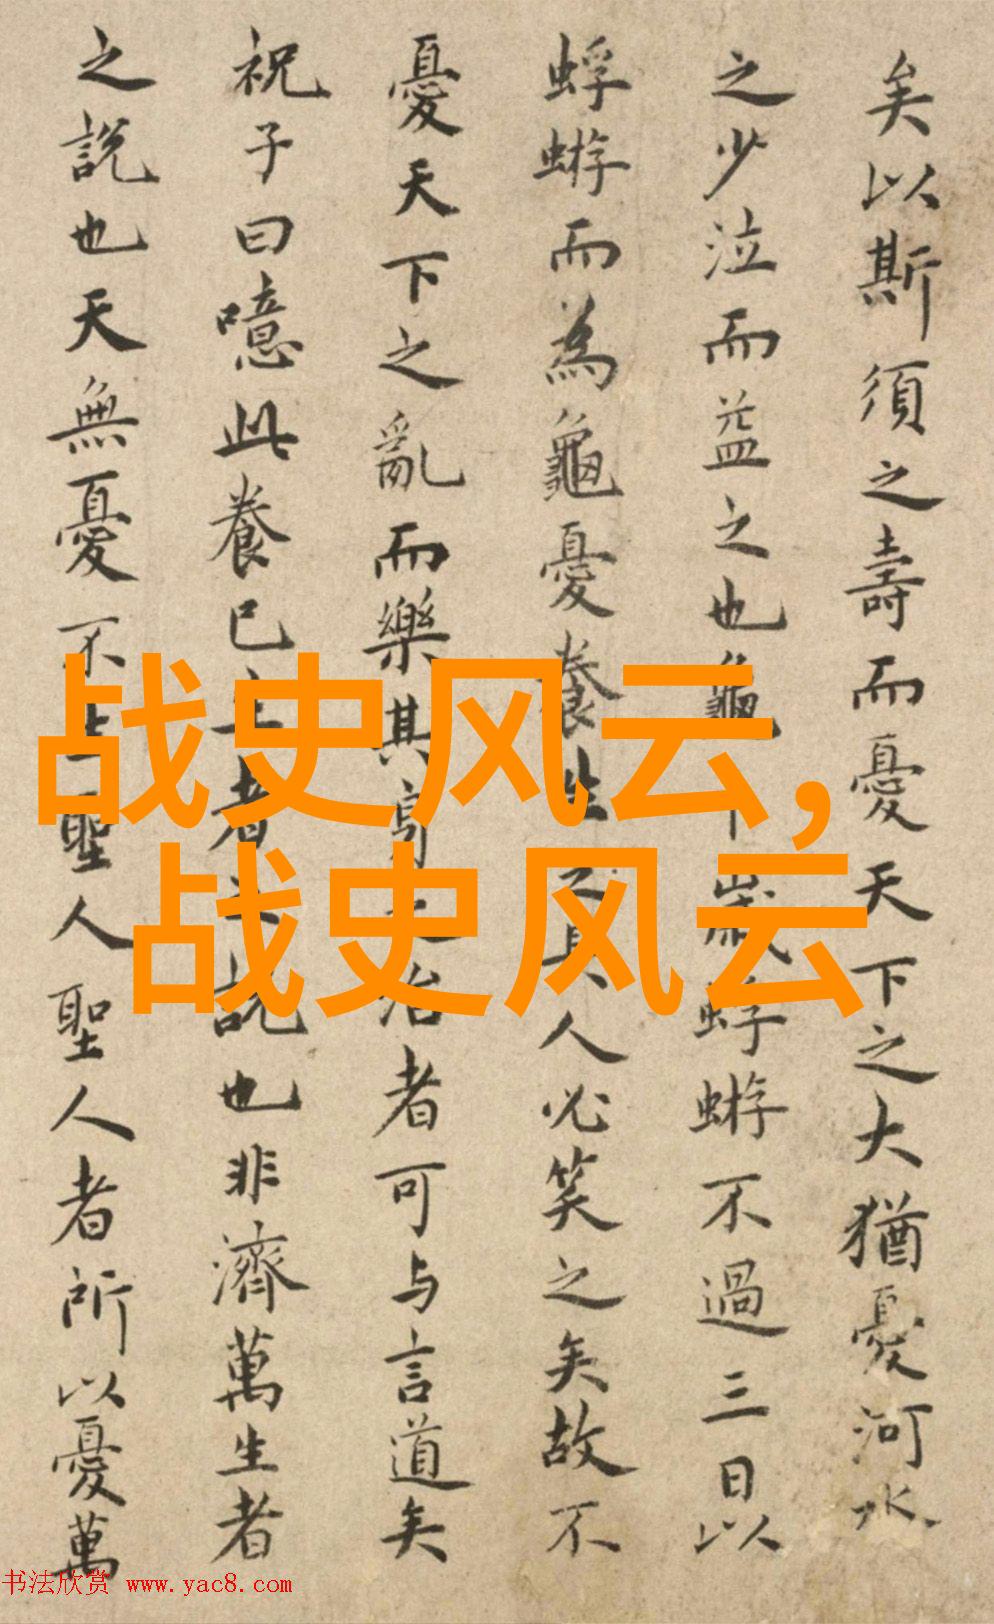 矣以斯須之壽而憂天下之大猶憂河水
之少泣而益之也龜千歲蜉蝣不過三日以
蜉蝣而為龜憂養生之具人必笑之矣故不
憂天下之亂而樂其身之治者可与言道矣
祝子曰噫此養已生者之說也非濟萬生者
之說也天無憂不生聖人聖人者所以憂萬
战史风云,
战史风云
书法欣赏 www.yac8.com